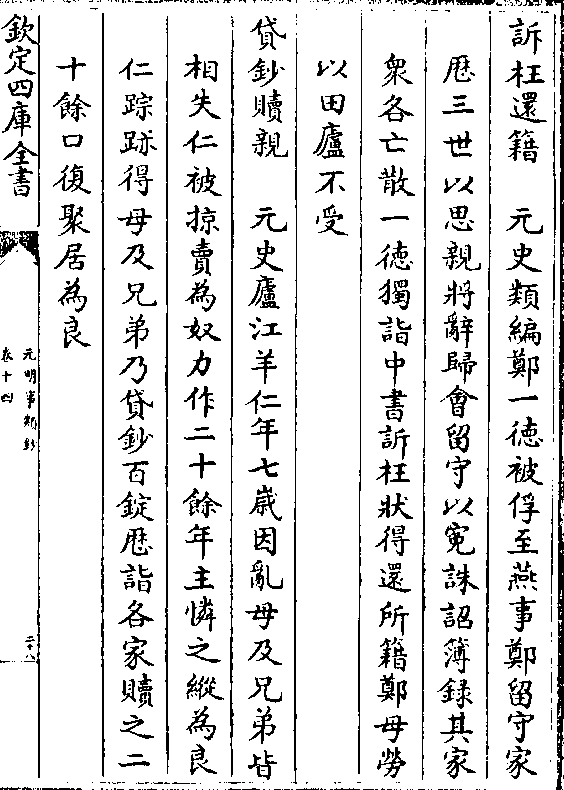 訴枉還籍　元史類編鄭一徳被俘至燕事鄭留守家
歴三世以思親將辭歸會留守以寃誅詔簿録其家
衆各亡散一徳獨詣中書訴枉狀得還所籍鄭母勞
以田廬不受
貸鈔贖親　元史廬江羊仁年七歳因亂母及兄弟皆
相失仁被掠賣為奴力作二十餘年主憐之縱為良
仁踪跡得母及兄弟乃貸鈔百錠歴詣各家贖之二
十餘口復聚居為良
欽定四庫全書
元明事類鈔
卷十四
二十八